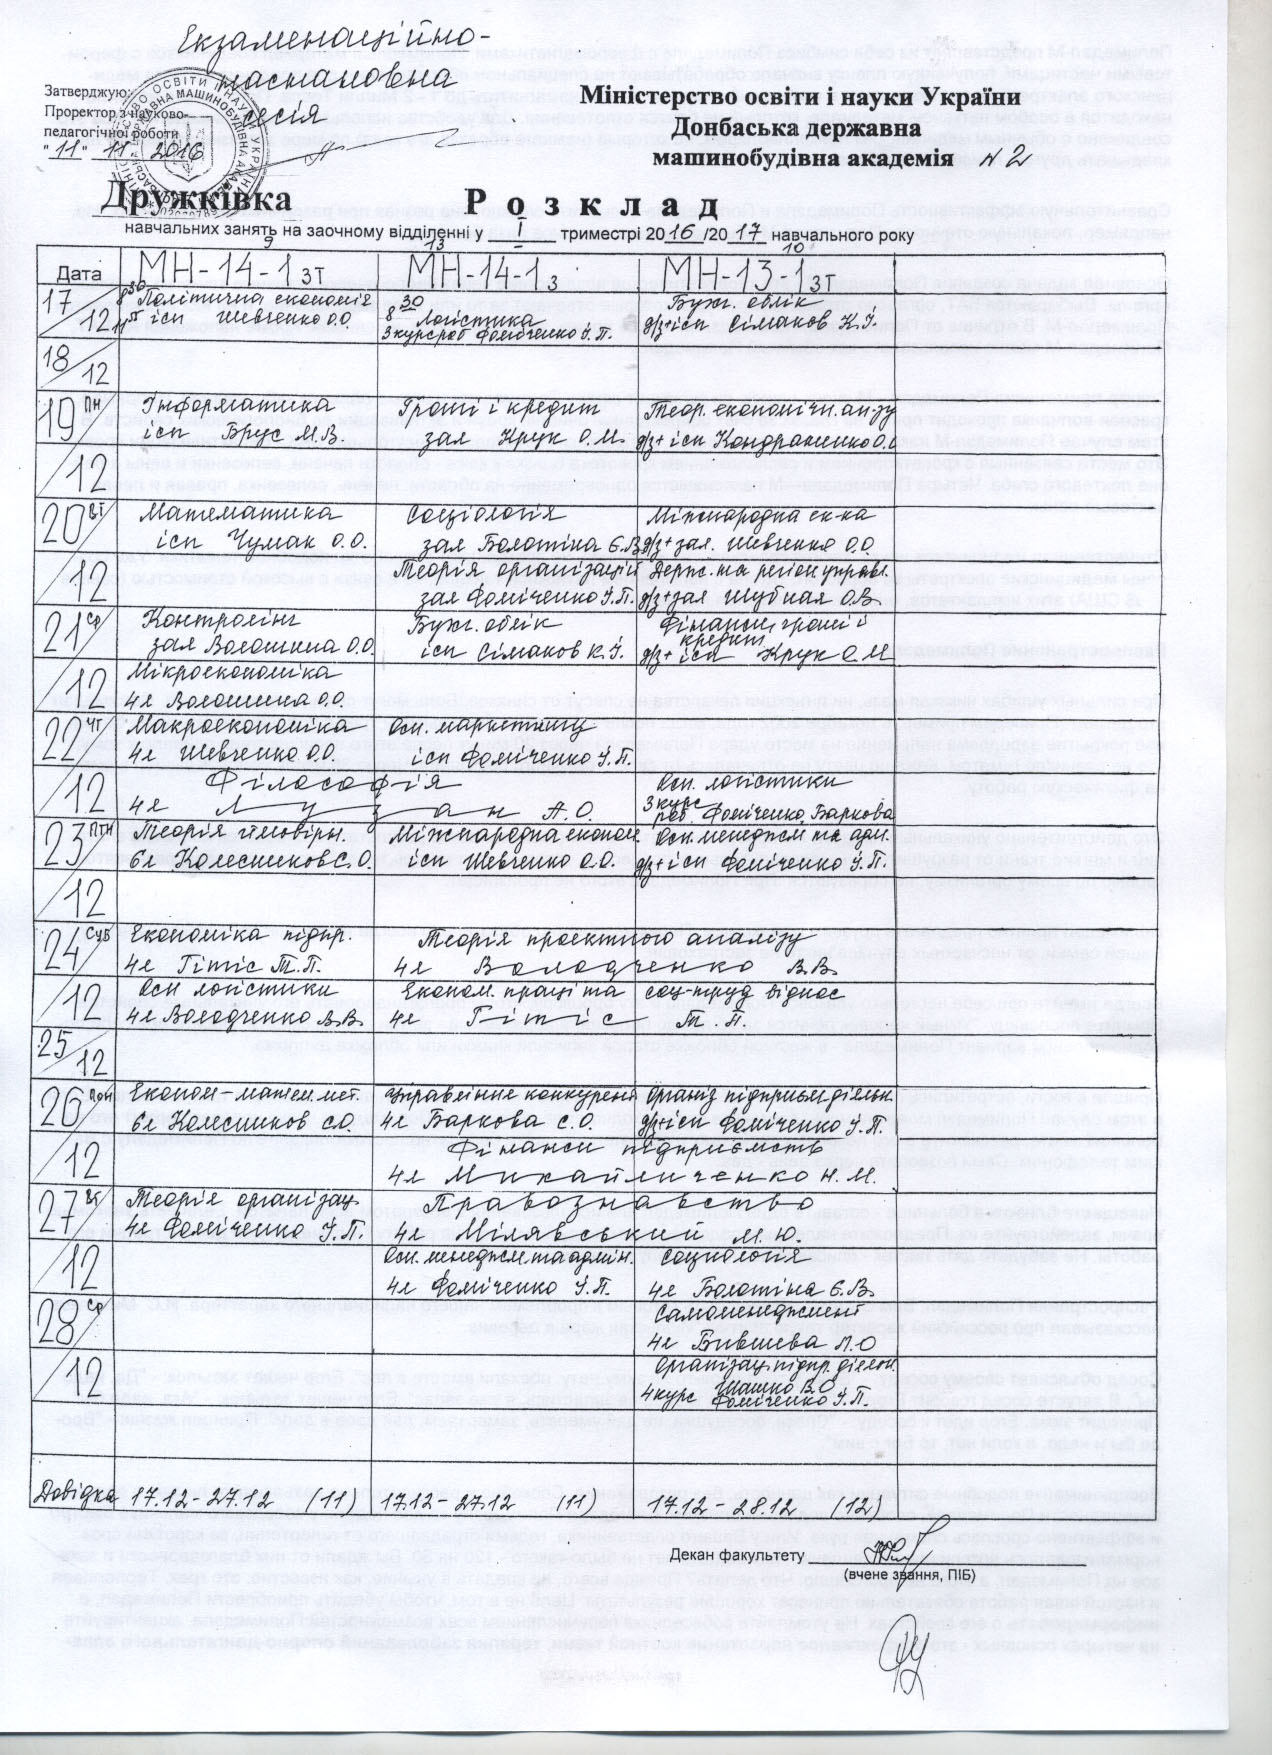 Екзаменаційно-
настановна
сесія
Затверджую:
Проректор з науково-
педагогічної роботи
"11" 11 2016
Міністерство освіти і науки України
Донбаська державна
машинобудівна академія №2
Дружківка
Розклад
навчальних занять на заочному відділенні у I триместрі 2016/2017 навчального року
9 13 10
Дата МН-14-1зт МН-14-1з МН-13-1зт
17/12
8 30 Політична економія
ісп Шевченко О.О.
8 30 Логістика
3 курс роб Фоміченко І.П.
Бухг. облік
д/з+ісп Сімаков К.І.
18/12
19 пн
12
Інформатика
ісп Брус М.В.
Гроші і кредит
зал Крук О.М.
Теор. економічн. ан-зу
д/з+ ісп Кондратенко О.О.
20 вт
12
Математика
ісп Чумак О.О.
Соціологія
зал Болотіна Є.В.
Міжнародна ек-ка
д/з+зал. Шевченко О.О.
Теорія організацій
зал Фоміченко І.П.
Держ. та регіон управл.
д/з+зал Шубная О.В.
21 ср
12
Контролінг
зал Волошина О.О.
Бухг. облік
ісп Сімаков К.І.
Фінанси, гроші і
кредит
д/з+ ісп Крук О.М
Мікроекономіка
4л Волошина О.О.
22 чт
12
Макроекономіка
4л Шевченко О.О.
Осн. маркетингу
ісп Фоміченко І.П.
Філософія
4л Лузан А.О.
Осн. логістики
3 курс
роб Фоміченко, Баркова
23 птн
12
Теорія ймовірн.
6л Колесников С.О.
Міжнародна економ.
ісп Шевченко О.О.
Осн. менеджм та адм.
д/з+ісп Фоміченко І.П.
24 суб
12
Економіка підпр.
4л Гітіс Т.П.
Теорія проектного аналізу
4л Володченко В.В.
Осн логістики
4л Володченко В.В.
Економ. праці та соц-труд віднос
4л Гітіс Т.П.
25/12
26 пон
12
Економ-матем. мет.
6л Колесников С.О.
Управління конкурент
4л Баркова С.О.
Організ підприєм. діяльн.
д/з+ісп Фоміченко І.П.
Фінанси підприємств
4л Михайличенко Н.М.
27 вт
12
Теорія організац.
4л Фоміченко І.П.
Правознавство
4л Мілявський М.Ю.
Осн. менеджм. та адмін.
4л Фоміченко І.П.
Соціологія
4л Болотіна Є.В.
28 ср
12
Самоменеджмент
4л Бившева Л.О
Організац. підпр. діяльн.
4 курс Шашко В.О.
Фоміченко І.П.
Довідка 17.12-27.12 (11) 17.12-27.12 (11) 17.12-28.12 (12)
Декан факультету
(вчене звання, ПІБ)